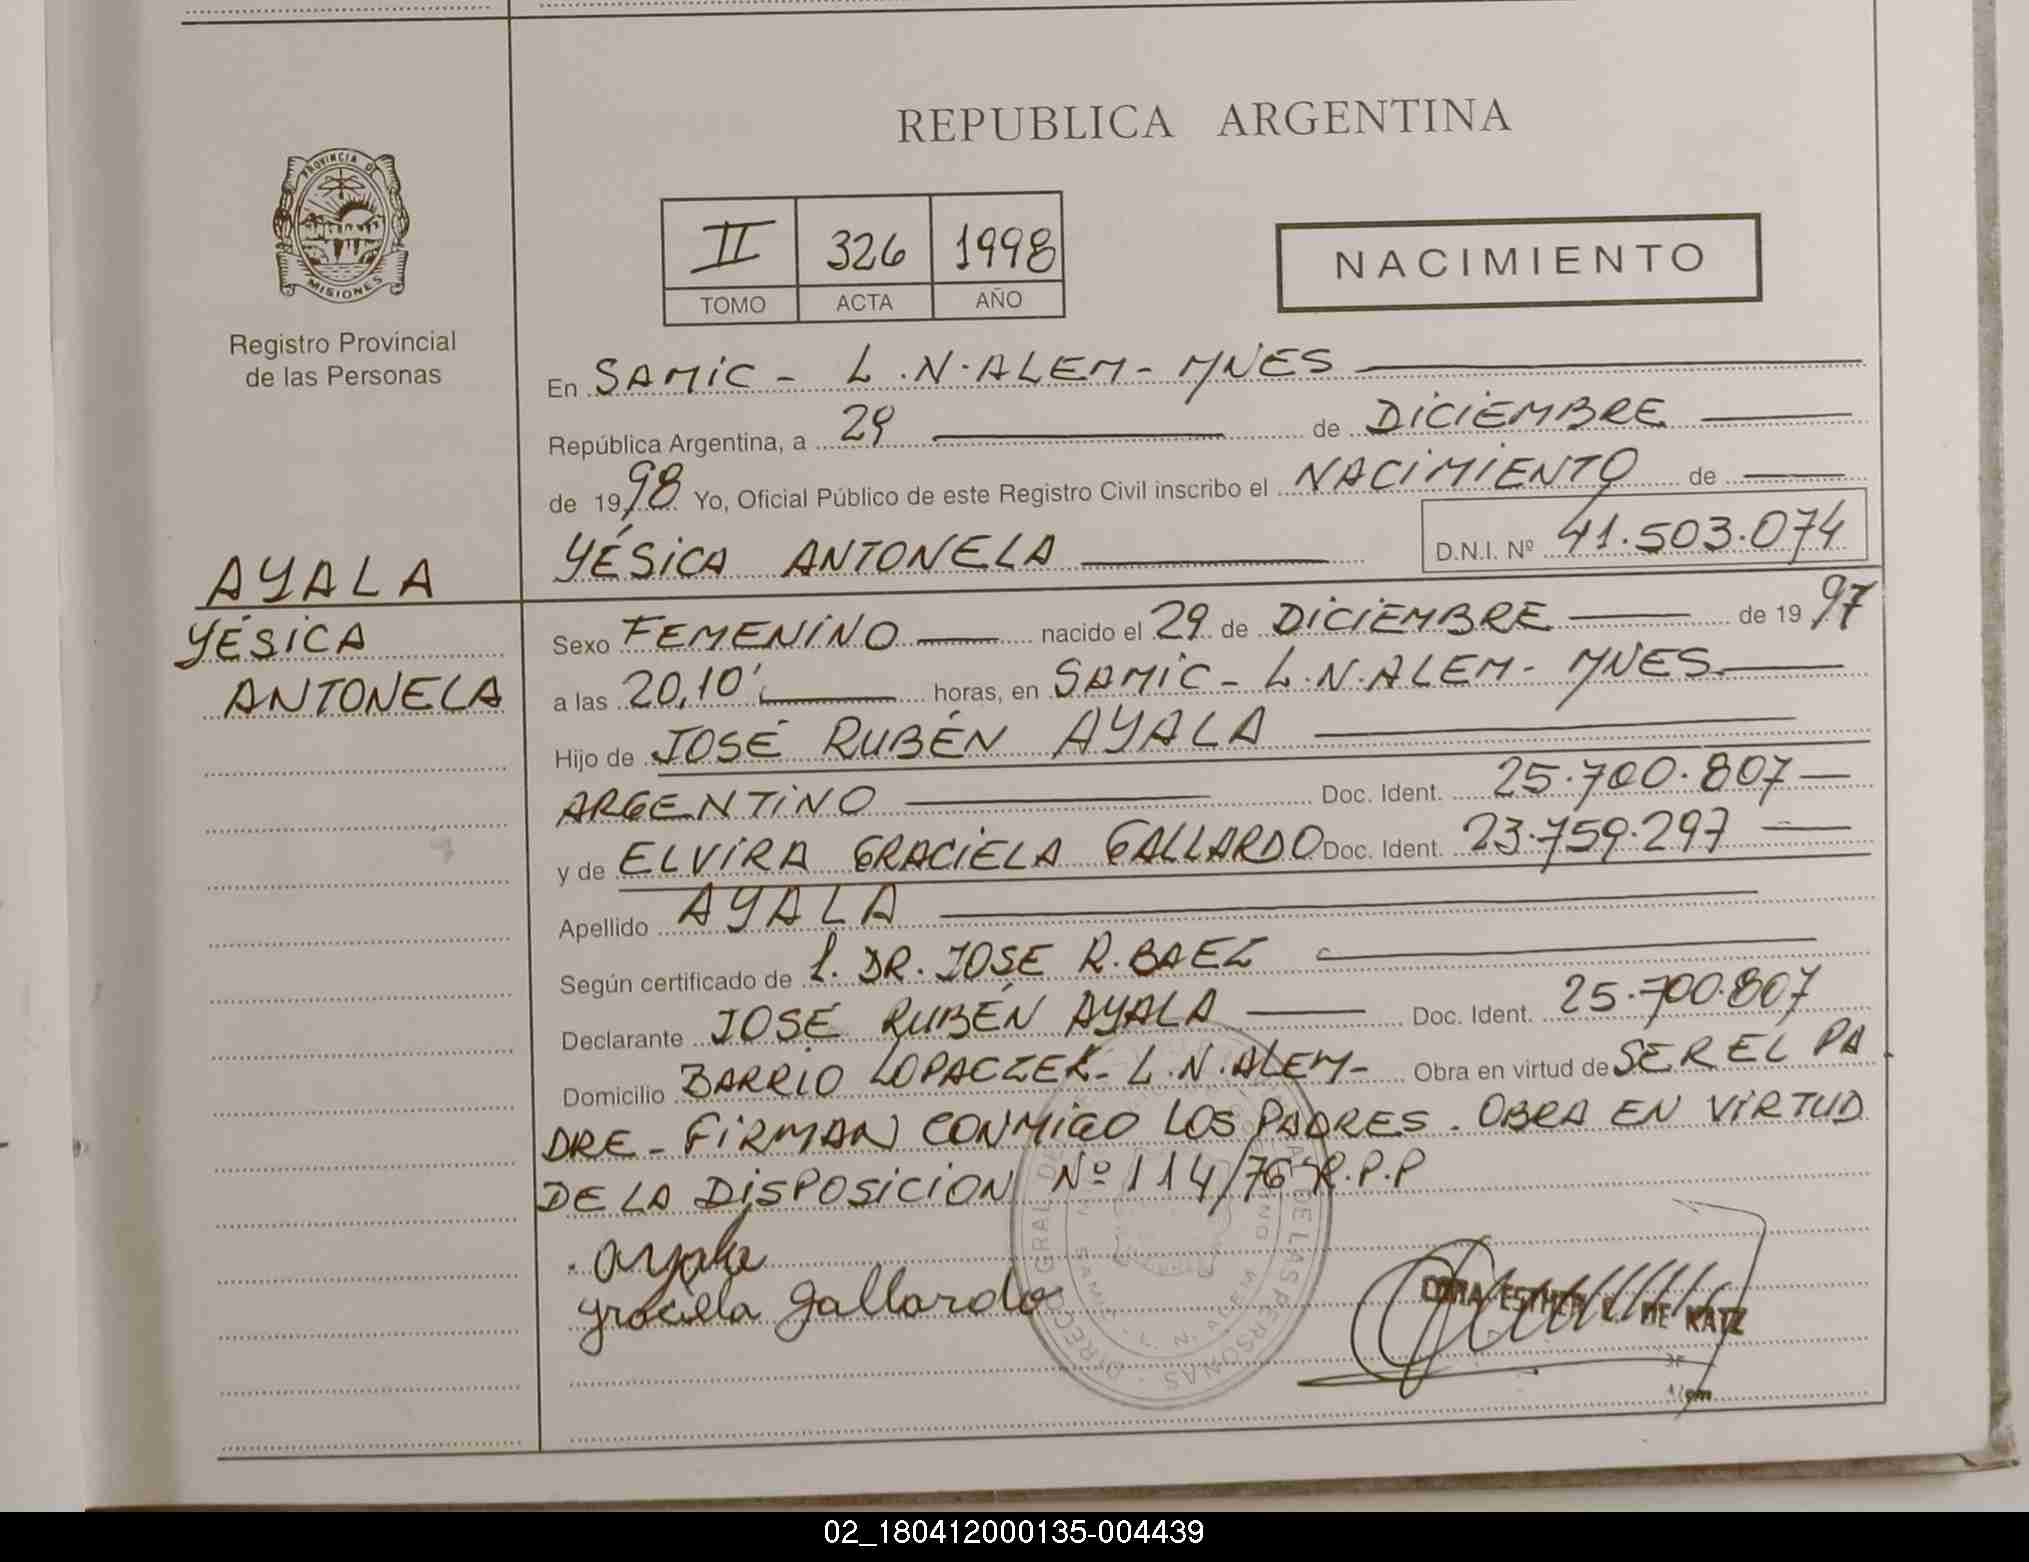 REPUBLICA ARGENTINA
PROVINCIA DE
MISIONES
Registro Provincial
de las Personas
II 326 1998
TOMO ACTA AÑO
NACIMIENTO
En SAMIC - L.N.ALEM - MNES
República Argentina, a 29 de DICIEMBRE
de 1998 Yo, Oficial Público de este Registro Civil inscribo el NACIMIENTO de
YÉSICA ANTONELA D.N.I. Nº 41.503.074
AYALA
YÉSICA
ANTONELA
Sexo FEMENINO nacido el 29 de DICIEMBRE de 1997
a las 20,10' horas, en SAMIC - L.N.ALEM - MNES
Hijo de JOSÉ RUBÉN AYALA
ARGENTINO Doc. Ident. 25.700.807
y de ELVIRA GRACIELA GALLARDO Doc. Ident. 23.759.297
Apellido AYALA
Según certificado de DR. JOSE R. BAEZ
Declarante JOSÉ RUBÉN AYALA Doc. Ident. 25.700.807
Domicilio BARRIO LOPACZEK - L.N.ALEM - Obra en virtud de SER EL PA
DRE - FIRMAN CONMIGO LOS PADRES. OBRA EN VIRTUD
DE LA DISPOSICION Nº 114/76 R.P.P
Ayala
Graciela Gallardo
ESTHER DE KATZ
02_180412000135-004439